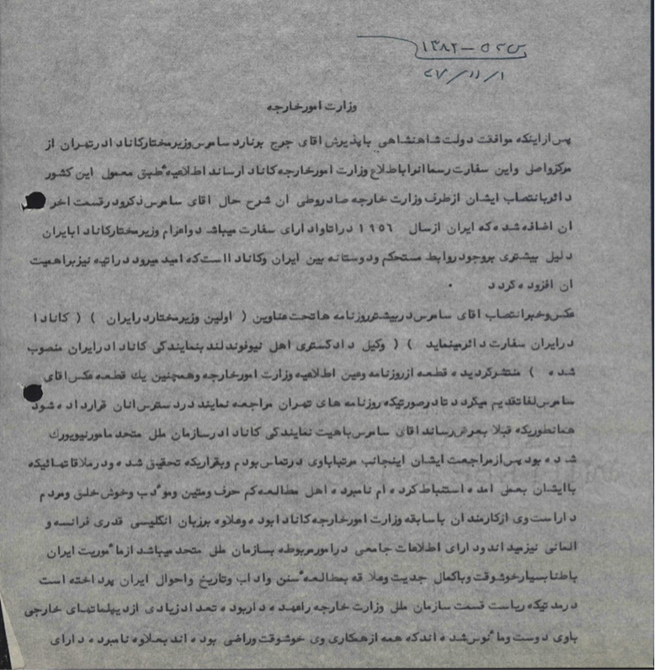 ۱۳۸۲-۵۲س
۳۷/۱۱/۱
وزارت امورخارجه
پس ازاینکه موافقت دولت شاهنشاهی باپذیرش اقای جرج برنارد سامرس وزیرمختارکانادا درتهران از
مرکزواصل واین سفارت رسما انراباطلاع وزارت امورخارجه کانادا رساند اطلاعیه طبق معمول این کشور
دائربانتصاب ایشان ازطرف وزارت خارجه صادروطی ان شرح حال اقای سامرس ذکرودرقسمت اخر
ان اضافه شده که ایران ازسال ۱۹۵٦ دراتاوادارای سفارت میباشد واعزام وزیرمختارکانادا بایران
دلیل بیشتری بروجودروابط مستحکم ودوستانه بین ایران وکانادا است که امید میرود دراتیه نیزبراهمیت
ان افزوده گردد .
عکس وخبرانتصاب اقای سامرس دربیشترروزنامه هاتحت عناوین ( اولین وزیرمختاردرایران ) ( کانادا
درایران سفارت دائرمینماید ) ( وکیل دادگستری اهل نیوفوندلند بنمایندگی کانادا درایران منصوب
شده ) منتشرگردیده قطعه ازروزنامه وعین اطلاعیه وزارت امورخارجه وهمچنین یك قطعه عکس اقای
سامرس لفاتقدیم میگردد تادرصورتیکه روزنامه های تهران مراجعه نمایند دردسترس انان قرارداده شود
همانطوریکه قبلا بعرض رساند اقای سامرس باهیت نمایندگی کانادا درسازمان ملل متحد مامورنیویورك
شده بود پس ازمراجعت ایشان اینجانب مرتباباوی درتماس بودم وبقراریکه تحقیق شده ودرملاقاتهائیکه
باایشان بعمل امده استنباط کرده ام نامبرده اهل مطالعه کم حرف ومتین ومؤدب وخوش خلق ومردم
داراست وی ازکارمندان باسابقه وزارت امورخارجه کانادا بوده وعلاوه برزبان انگلیسی قدری فرانسه و
المانی نیزمیداند ودارای اطلاعات جامعی درامورمربوطه بسازمان ملل متحد میباشد ازمأموریت ایران
باطنا بسیارخوشوقت وباکمال جدیت وعلاقه بمطالعه سنن واداب وتاریخ واحوال ایران پرداخته است
درمدتیکه ریاست قسمت سازمان ملل وزارت خارجه رابعهده داربوده تعدادزیادی ازدیپلماتهای خارجی
باوی دوست ومأنوس شده اندکه همه ازهمکاری وی خوشوقت وراضی بوده اند بعلاوه نامبرده دارای